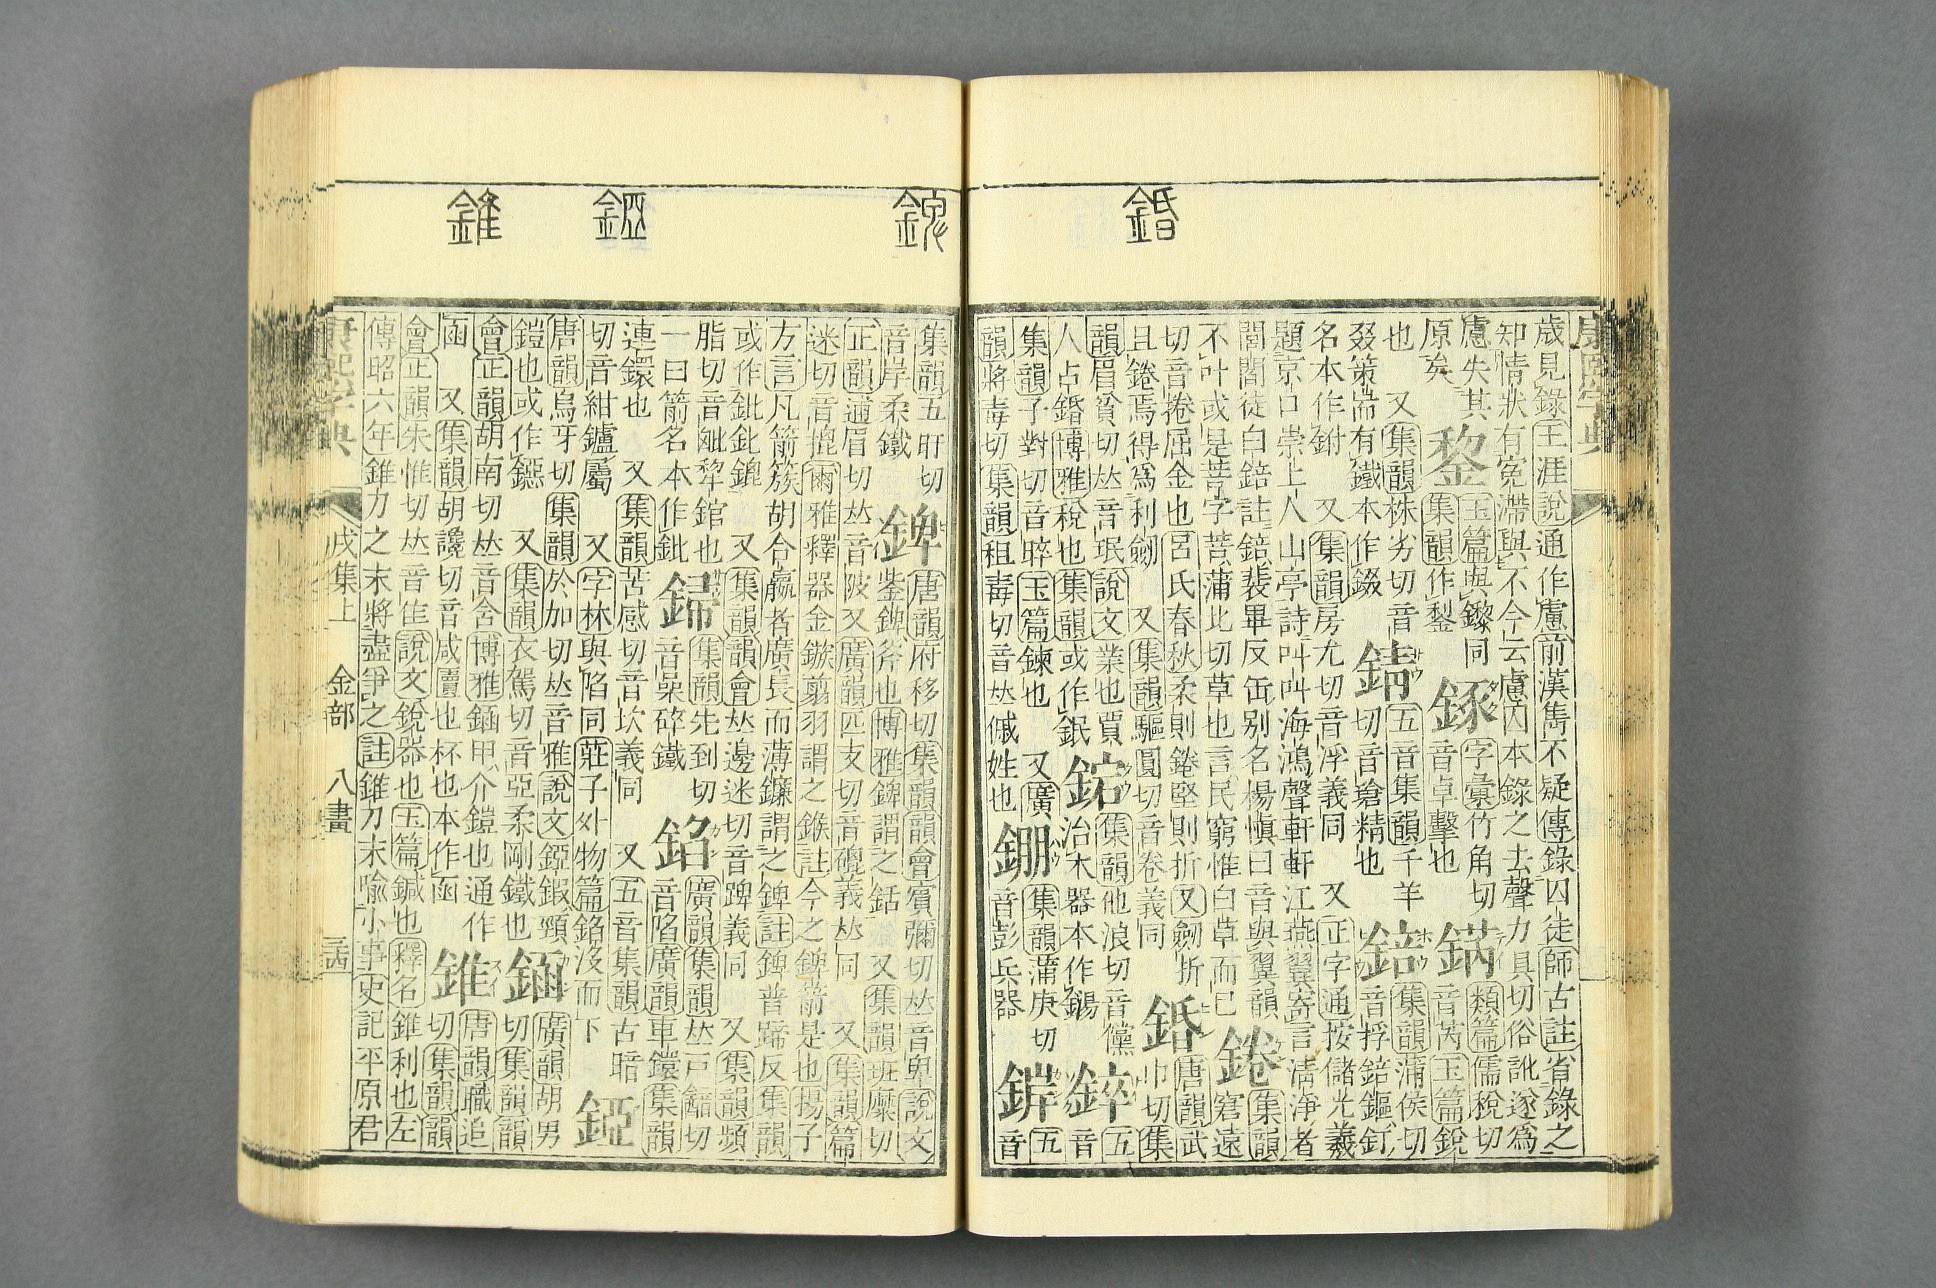 錉
康熙字典
歲見錄王涯說通作慮前漢雋不疑傳錄囚徒師古註省錄之
知情狀有冤滯與不今云慮囚本錄之去聲力具切俗訛遂爲
慮失其
原矣
鋫
玉篇與鑗同
集韻作鋫
鋷
字彙竹角切
音卓擊也
鈵
類篇儒稅切
音芮玉篇銳
也 又集韻株劣切音
叕策耑有鐵本作錣
錆
五音集韻千羊
切音瑲精也
錇
集韻蒲侯切
音捊錇鏂釘
名本作鉜 又集韻房尤切音浮義同 又正字通按儲光羲
題京口崇上人山亭詩叫叫海鴻聲軒軒江燕翼寄言清淨者
閭閻徒白錇註錇裴畢反缶别名楊愼曰音與翼韻
不叶或是菩字菩蒲北切草也言民窮惟白草而已
錈
集韻
窘遠
切音捲屈金也呂氏春秋柔則錈堅則折又劒折
且錈焉得爲利劒 又集韻驅圓切音卷義同
錉
唐韻武
巾切集
韻眉貧切𠀤音珉說文業也賈
人占錉博雅稅也集韻或作鈱
鋎
集韻他浪切音儻
治木器本作鐋
錊
五
音
集韻子對切音晬玉篇鍊也 又廣
韻將毒切集韻租毒切音𠀤傶姓也
錋
集韻蒲庚切
音彭兵器
錌
五
音
錐 錏 鋺
集韻五旰切
音岸柔鐵
錍
唐韻府移切集韻韻會賓彌切𠀤音卑說文
鈭錍斧也博雅錍謂之銛 又集韻班糜切
正韻逋眉切𠀤音陂又廣韻匹支切音磇義𠀤同 又集韻篇
迷切音㨽爾雅釋器金鏃翦羽謂之鍭註今之錍箭是也揚子
方言凡箭簇胡合嬴者廣長而薄鐮謂之錍註錍普蹄反集韻
或作鈚鈚鎞 又集韻韻會𠀤邊迷切音踔義同 又集韻頻
脂切音毗犂錧也
一曰箭名本作鈚
鍗
集韻先到切
音喿碎鐵
錎
廣韻集韻𠀤戸韽切
音陷廣韻車鐶集韻
連鐶也 又集韻苦感切音坎義同 又五音集韻古暗
切音紺鑪屬 又字林與陷同莊子外物篇錎沒而下
錏
唐韻烏牙切集韻於加切𠀤音雅說文錏鍜頸
鎧也或作鐚 又集韻衣駕切音亞柔剛鐵也
錋
廣韻胡男
切集韻韻
會正韻胡南切𠀤音含博雅錋甲介鎧也通作
函 又集韻胡讒切音咸櫝也杯也本作函
錐
唐韻職追
切集韻韻
會正韻朱惟切𠀤音隹說文銳器也玉篇鍼也釋名錐利也左
傳昭六年錐刀之末將盡爭之註錐刀末喻小事史記平原君
康熙字典 戌集上 金部 八畫